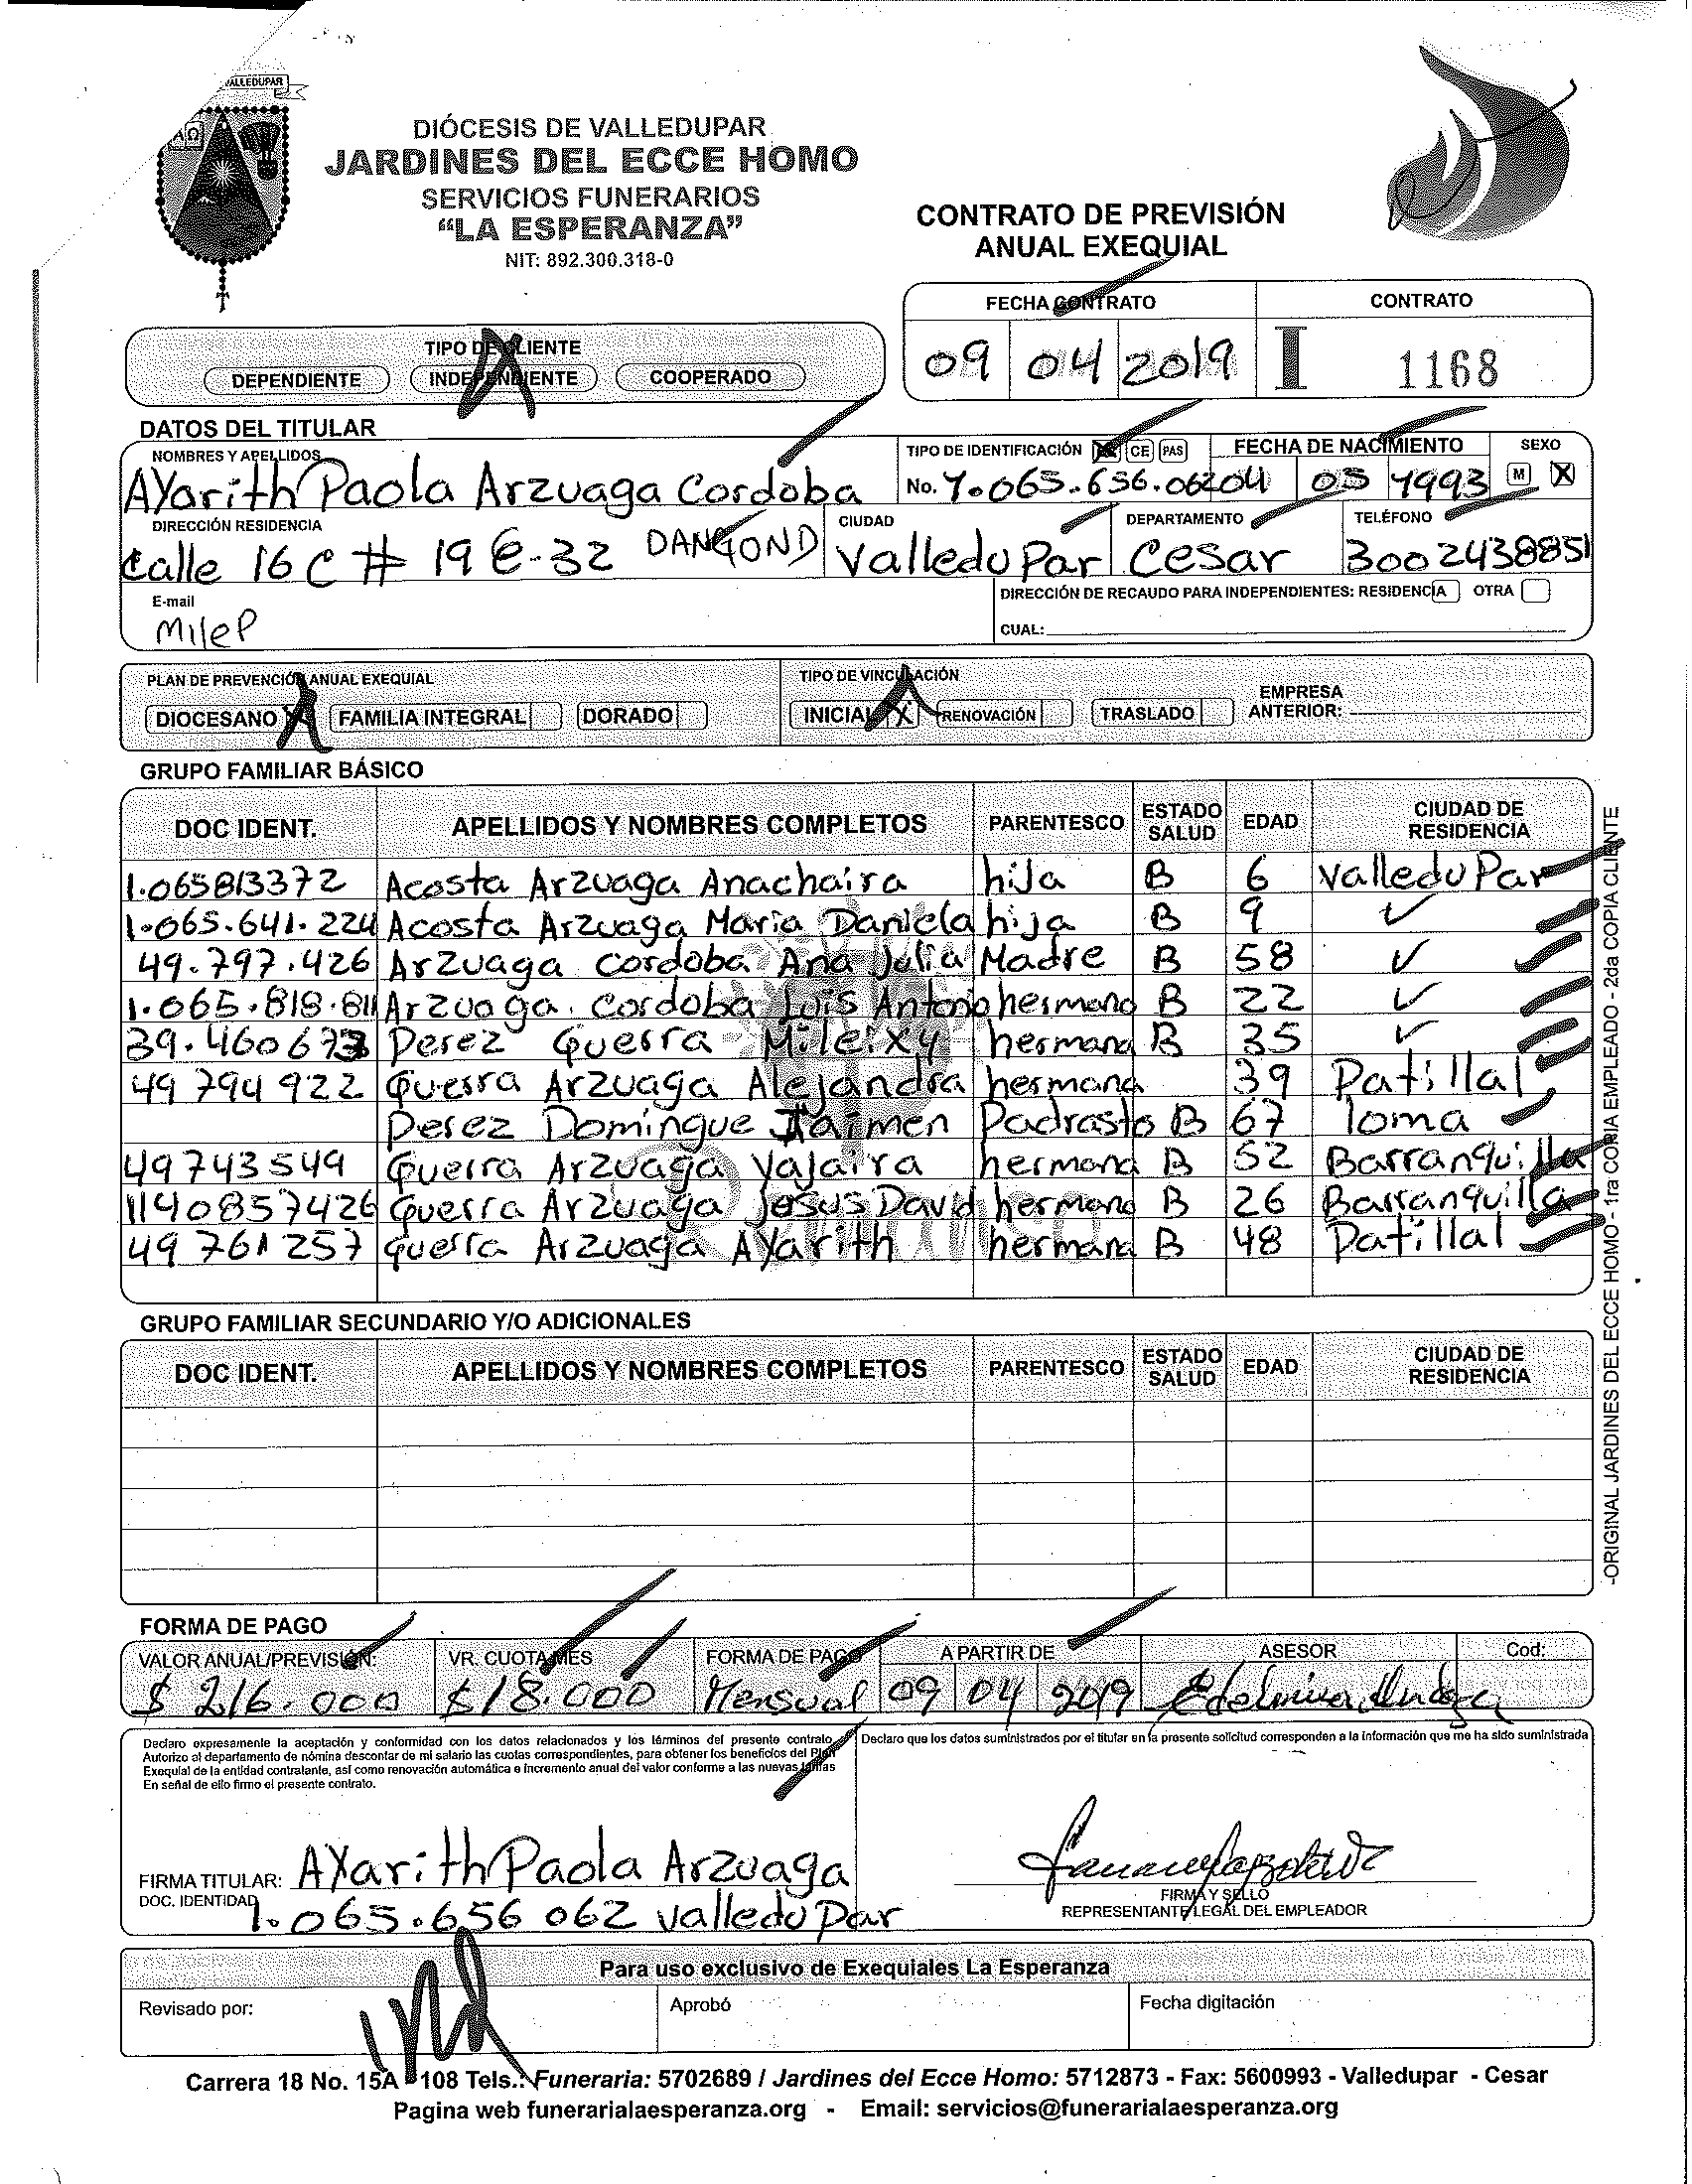 VALLEDUPAR
DIÓCESIS DE VALLEDUPAR
JARDINES DEL ECCE HOMO
SERVICIOS FUNERARIOS
“LA ESPERANZA”
NIT: 892.300.318-0
CONTRATO DE PREVISIÓN
ANUAL EXEQUIAL
FECHA CONTRATO CONTRATO
09 04 2019 I 1168
TIPO DE CLIENTE
DEPENDIENTE INDEPENDIENTE COOPERADO
DATOS DEL TITULAR
NOMBRES Y APELLIDOS TIPO DE IDENTIFICACIÓN CE PAS FECHA DE NACIMIENTO SEXO
AYarith Paola Arzuaga Cordoba No. 1.065.656.062 04 05 1993 M X
DIRECCIÓN RESIDENCIA CIUDAD DEPARTAMENTO TELÉFONO
calle 16 C # 19 E-32 DANGOND ValleduPar Cesar 3002438851
E-mail DIRECCIÓN DE RECAUDO PARA INDEPENDIENTES: RESIDENCIA OTRA
MileP
CUAL:
PLAN DE PREVENCIÓN ANUAL EXEQUIAL TIPO DE VINCULACIÓN
DIOCESANO X FAMILIA INTEGRAL DORADO INICIAL X RENOVACIÓN TRASLADO EMPRESA ANTERIOR:
GRUPO FAMILIAR BÁSICO
DOC IDENT. APELLIDOS Y NOMBRES COMPLETOS PARENTESCO ESTADO SALUD EDAD CIUDAD DE RESIDENCIA
1.065813372 Acosta Arzuaga Anachaira hija B 6 ValleduPar
1.065.641.224 Acosta Arzuaga Maria Daniela hija B 9 ✓
49.797.426 Arzuaga Cordoba Ana Julia Madre B 58 ✓
1.065.818.811 Arzuaga Cordoba Luis Antonio hermano B 22 ✓
39.460673 Perez Guerra Mileixy hermana B 35 ✓
49 794 922 Guerra Arzuaga Alejandra hermana 39 Patillal
Perez Domingue Jaimen Padrasto B 67 loma
49743549 Guerra Arzuaga Yajaira hermana B 52 Barranquilla
1140857426 Guerra Arzuaga Jesus David hermano B 26 Barranquilla
49 761 257 Guerra Arzuaga AYarith hermana B 48 Patillal
GRUPO FAMILIAR SECUNDARIO Y/O ADICIONALES
DOC IDENT. APELLIDOS Y NOMBRES COMPLETOS PARENTESCO ESTADO SALUD EDAD CIUDAD DE RESIDENCIA
-ORIGINAL JARDINES DEL ECCE HOMO - 1ra COPIA EMPLEADO - 2da COPIA CLIENTE
FORMA DE PAGO
VALOR ANUAL/PREVISIÓN: VR. CUOTA MES FORMA DE PAGO A PARTIR DE ASESOR Cod:
$ 216.000 $18.000 Mensual 09 04 2019 Edelmira
Declaro expresamente la aceptación y conformidad con los datos relacionados y los términos del presente contrato
Autorizo al departamento de nómina descontar de mi salario las cuotas correspondientes, para obtener los beneficios del Plan
Exequial de la entidad contratante, así como renovación automática e incremento anual del valor conforme a las nuevas tarifas
En señal de ello firmo el presente contrato.
Declaro que los datos suministrados por el titular en la presente solicitud corresponden a la información que me ha sido suministrada
FIRMA TITULAR: AYarith Paola Arzuaga
DOC. IDENTIDAD 1.065.656 062 ValleduPar
FIRMA Y SELLO
REPRESENTANTE LEGAL DEL EMPLEADOR
Para uso exclusivo de Exequiales La Esperanza
Revisado por: Aprobó Fecha digitación
Carrera 18 No. 15A 108 Tels.: Funeraria: 5702689 / Jardines del Ecce Homo: 5712873 - Fax: 5600993 - Valledupar - Cesar
Pagina web funerarialaesperanza.org - Email: servicios@funerarialaesperanza.org